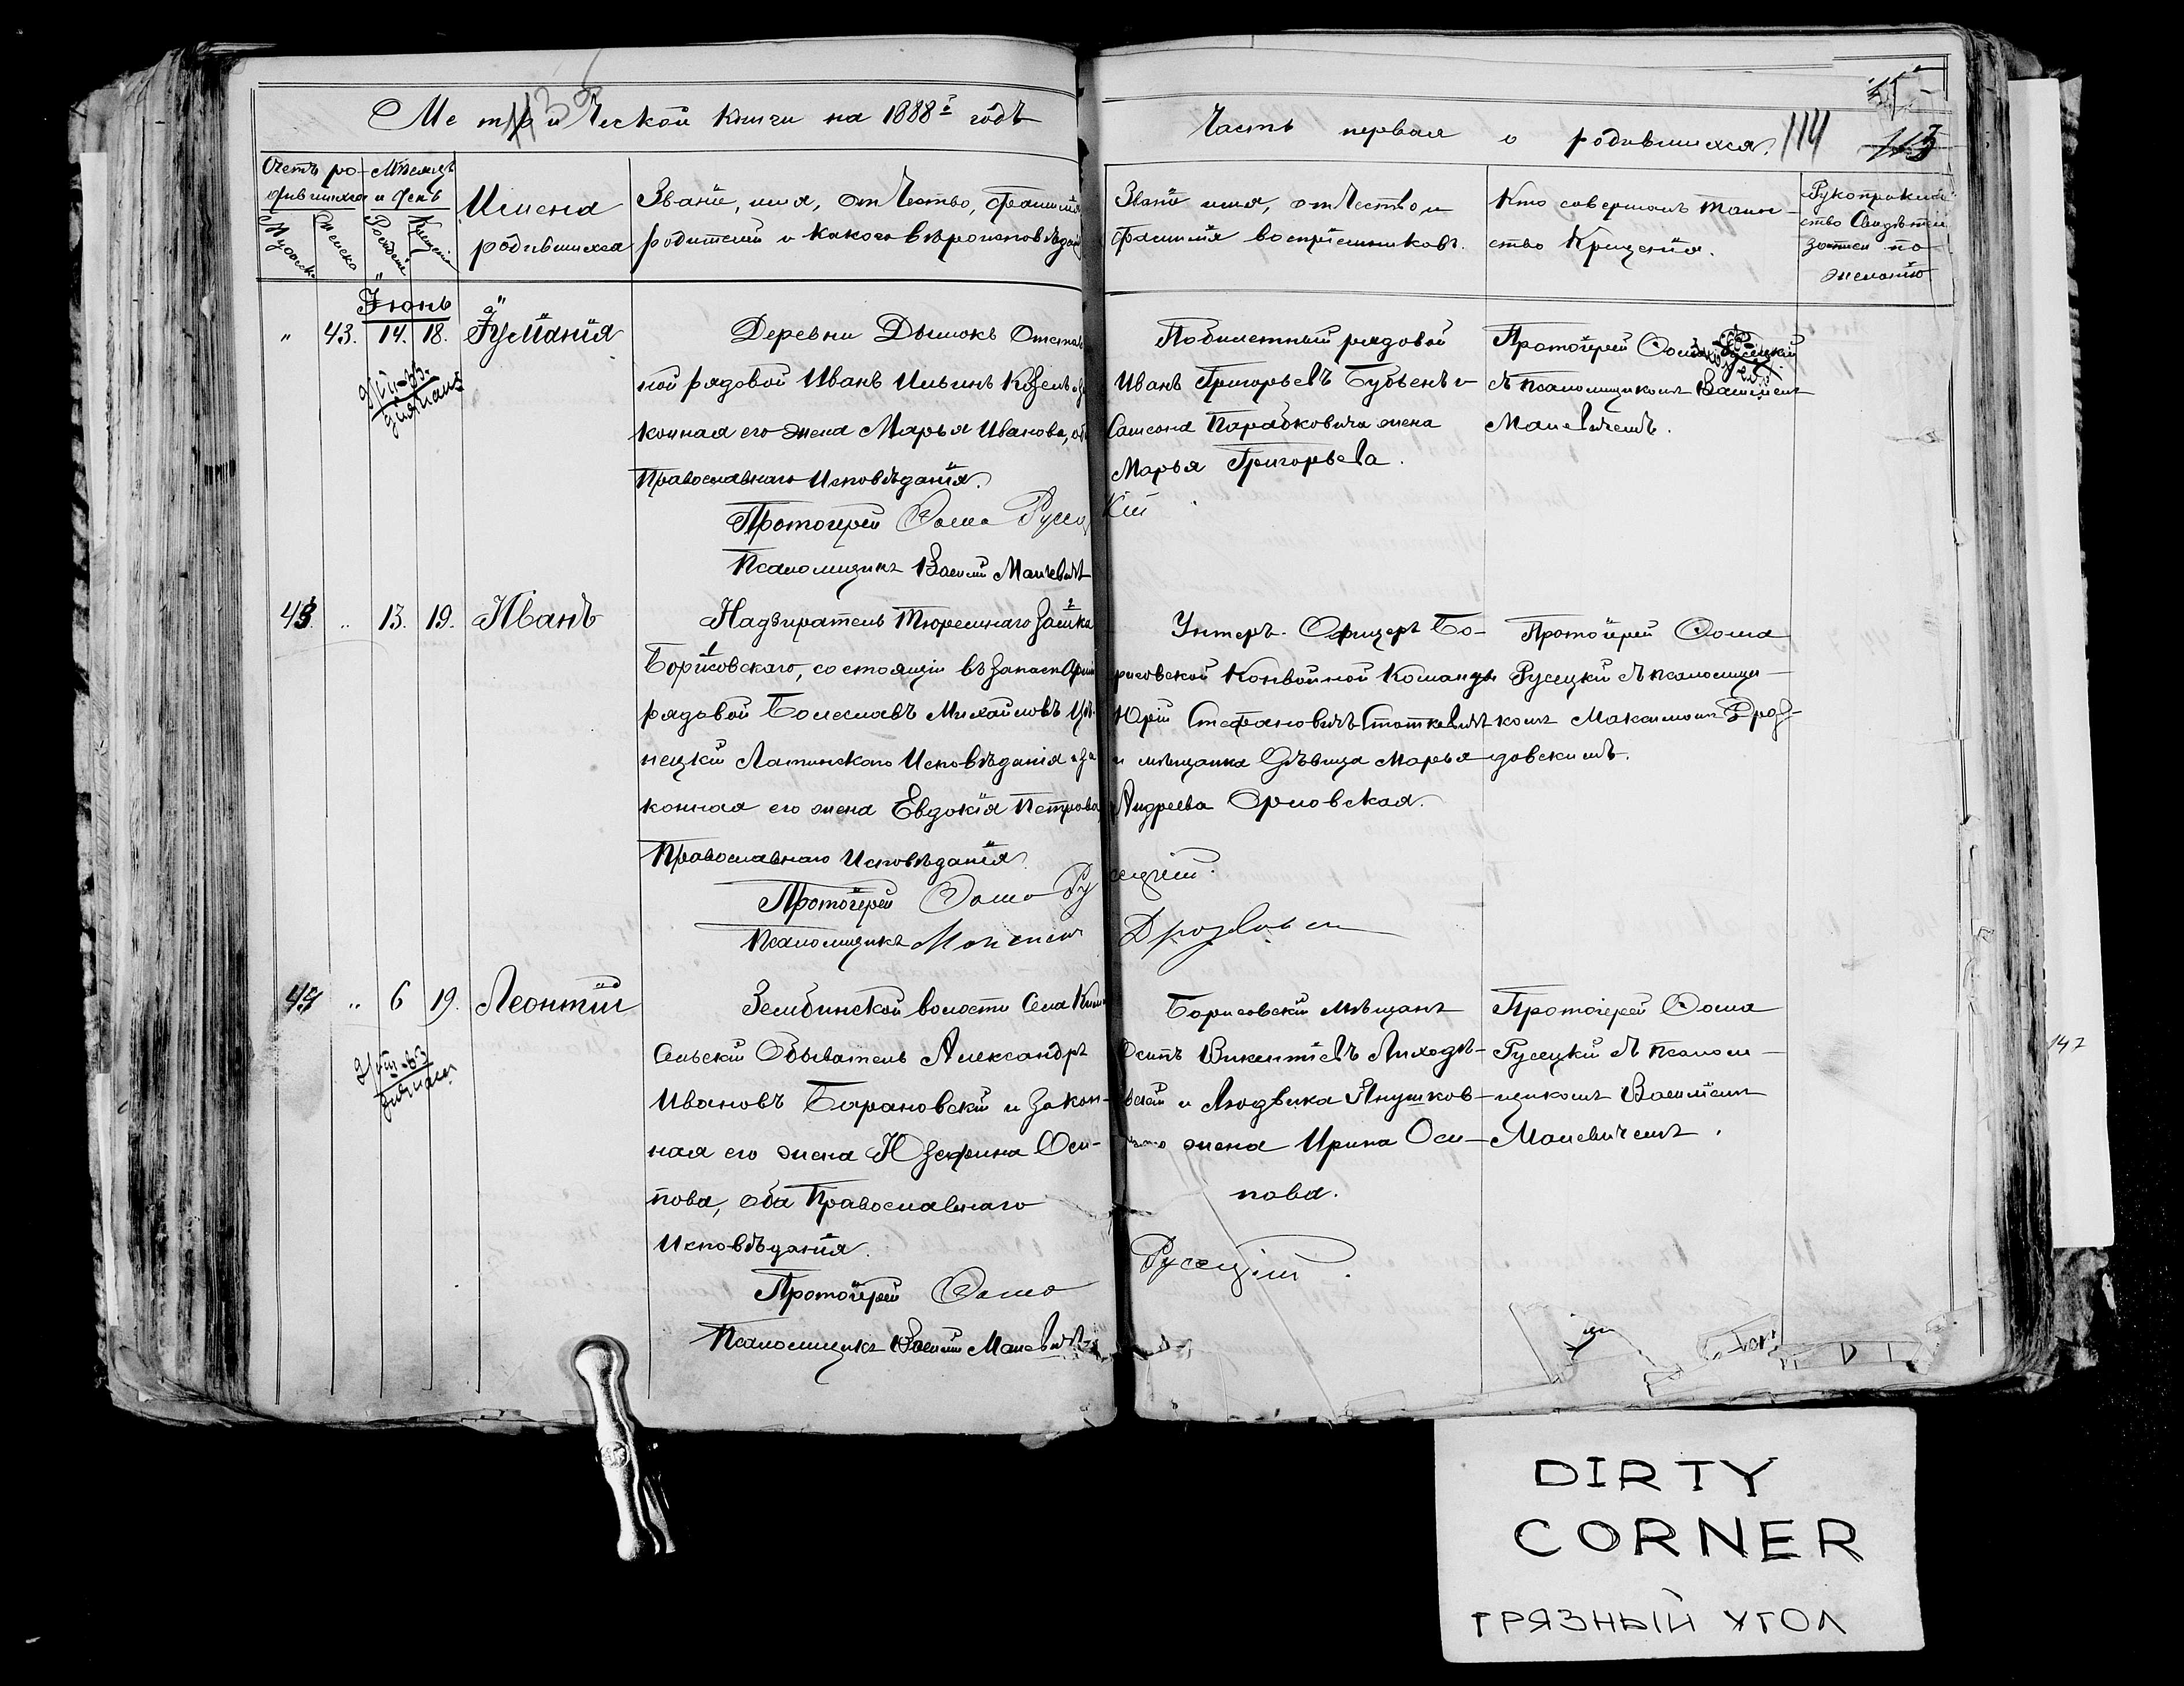 Метрической книги на 1888й годъ
Часть первая о родившихся. 114
113
Счетъ ро-
дившихся
Мѣсяцъ
и день
Мужеска
Женска
Рожденiя
Крещенiя
Имена
родившихся
Званiе, имя, отчество, фамилiя
родителей и какого вѣроисповѣданiя
Званiе имя, отчество и
фамилiя воспрiемниковъ.
Кто совершалъ таин-
ство Крещенiя.
Рукоприклад
ство свидѣтелей
записи по
желанiю
Iюнь
" 43. 14. 18.
Деревни Дымокъ Отстав
ной рядовой Иванъ Ильинъ и за
конная его жена Марья Иванова, оба
Православнаго Исповѣданiя.
Протоiерей Ѳома Русец
кiй
Псаломщикъ Василiй Мацкевичъ
Побилетный рядовой
Иванъ Григорьевъ и
Самсона жена
Марья Григорьева.
Протоiерей Ѳома Русецкiй
съ псаломщикомъ Василiемъ
43. " 13. 19. Иванъ
Надзиратель Тюремнаго Замка
Борисовскаго, состоящiй въ запасѣ Армiи
рядовой Болеславъ Михайловъ
Латинскаго Исповѣданiя и за
конная его жена Евдокiя Петрова
Православнаго Исповѣданiя.
Протоiерей Ѳома Ру
сецкiй.
Псаломщикъ Максимъ
Унтеръ-Офицеръ Бо-
рисовской Конвойной Команды
Юрiй Стефановичъ Статкевичъ
и мѣщанка дѣвица Марья
Андреева Орловская.
Протоiерей Ѳома
Русецкiй съ псаломщи-
комъ Максимомъ Дроз-
довскимъ.
44 " 6 19. Леонтiй
Зембинской волости Села
Сельскiй Обыватель Александръ
Ивановъ Барановскiй и закон-
ная его жена Юзефина Оси-
пова, оба Православнаго
Исповѣданiя.
Протоiерей Ѳома
Русецкiй.
Псаломщикъ Василiй
Борисовскiй Мѣщанинъ
Осипъ Викентiевъ
и Людвика Янушков-
жена Ирина Оси-
пова.
Протоiерей Ѳома
Русецкiй съ псалом-
щикомъ Василiемъ
147
DIRTY
CORNER
ГРЯЗНЫЙ УГОЛ